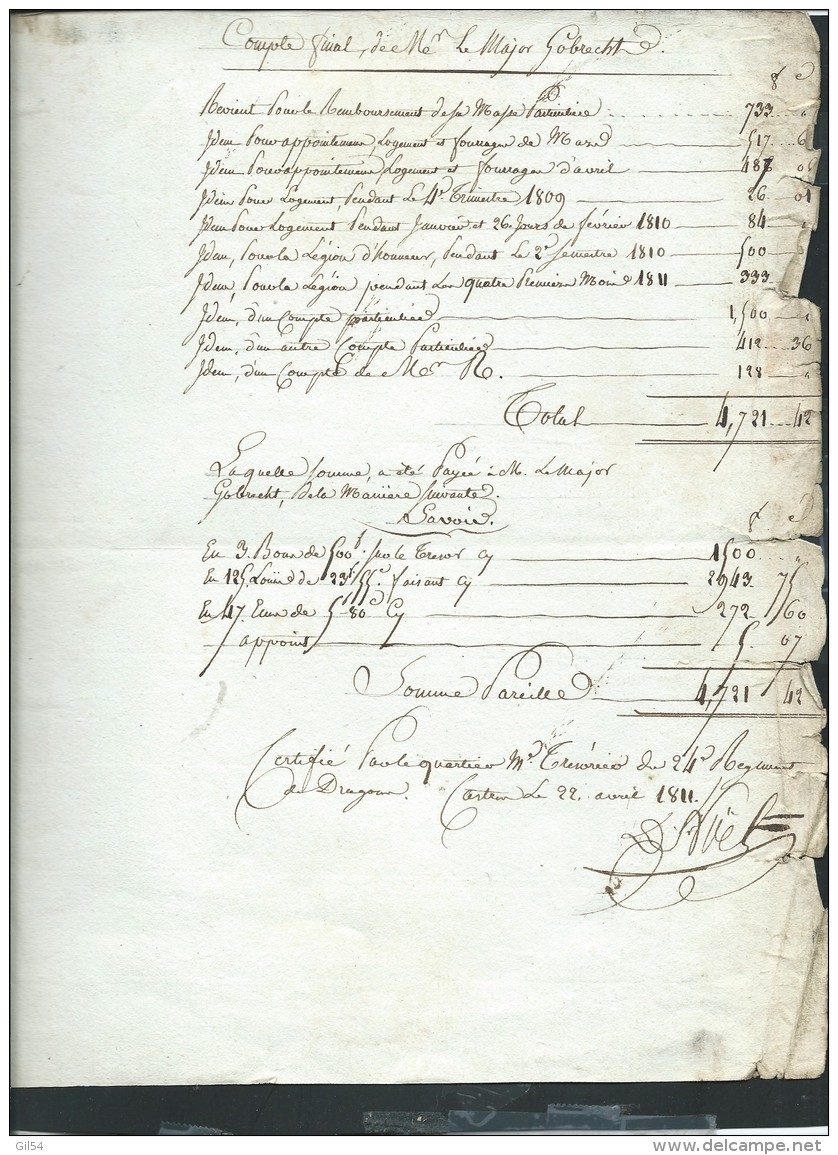 Compte final, de Mr Le Major Gobrecht.
f c
Revient Pour le Remboursement de sa Masse Particulière 733 "
Idem Pour appointemens, Logement et fourrages de Mars 517 6
Idem Pour appointemens, Logement et fourrages d'avril 487 0
Idem Pour Logement, Pendant Le 4e Trimestre 1809 26 01
Idem Pour Logement Pendant Janvier et 26 Jours de février 1810 84 "
Idem, Pour la Légion d'honneur, Pendant Le 2e Semestre 1810 500 "
Idem, Pour la Légion pendant Les quatre Premiers Mois 1811 333
Idem, d'un Compte particulier 1,500 "
Idem, d'un autre Compte Particulier 412 36
Idem, d'un Compte de Mr R. 128 "
Total 4,721 42
Laquelle somme, a été Payée à M. Le Major
Gobrecht, de la Manière Suivante.
Savoir.
f c
En 3. Bons de 500f sur le Trésor Cy 1500 "
En 125. Louis de 23f 55c faisant Cy 2943. 75
En 47. Ecus de 5f 80c Cy 272 60
appoint 5. 07
Somme Pareille 4,721 42
Certifié Par le quartier Me Trésorier du 24e Régiment
de Dragons. Le 22. avril 1811.
Gil54
www.delcampe.net